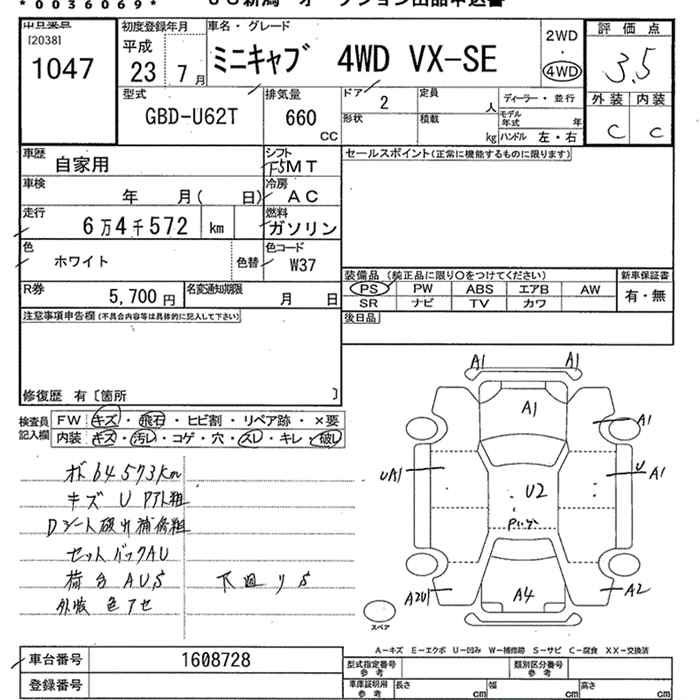 *0036069*
オークション出品申込書
[2038]
1047
初度登録年月
平成
23 7 月
車名・グレード
ミニキャブ 4WD VX-SE
2WD
・
4WD
評価点
3.5
外装 内装
C C
型式
GBD-U62T
排気量
660
CC
ドア
2
定員
人
形状
積載
kg
ディーラー・並行
モデル年式 年
ハンドル 左・右
車歴
自家用
シフト
F5MT
車検
年 月( 日)
冷房
AC
走行
6万4千572 km
燃料
ガソリン
色
ホワイト
色替
色コード
W37
R券
5,700 円
名変通知期限
月 日
セールスポイント(正常に機能するものに限ります)
装備品 (純正品に限り○をつけてください)
新車保証書
PS PW ABS エアB AW
有・無
SR ナビ TV カワ
後日品
注意事項申告欄(不具合内容等は具体的に記入して下さい)
修復歴 有〔箇所 〕
検査員記入欄
FW キズ・飛石・ヒビ割・リペア跡・×要
内装 キズ・汚レ・コゲ・穴・スレ・キレ・破レ
64573km
キズ U
Dシート破れ補修
セットバックAU
荷台 AUS
下廻りS
外装 色アセ
A1 A1
A1
A1
UA1
U A1
U2
A2U1
A4
A2
スペア
A-キズ E-エクボ U-凹み W-補修跡 S-サビ C-腐食 XX-交換済
車台番号
1608728
登録番号
型式指定番号
参考
類別区分番号
参考
車庫証明用
参考
長さ cm 幅 cm 高さ cm